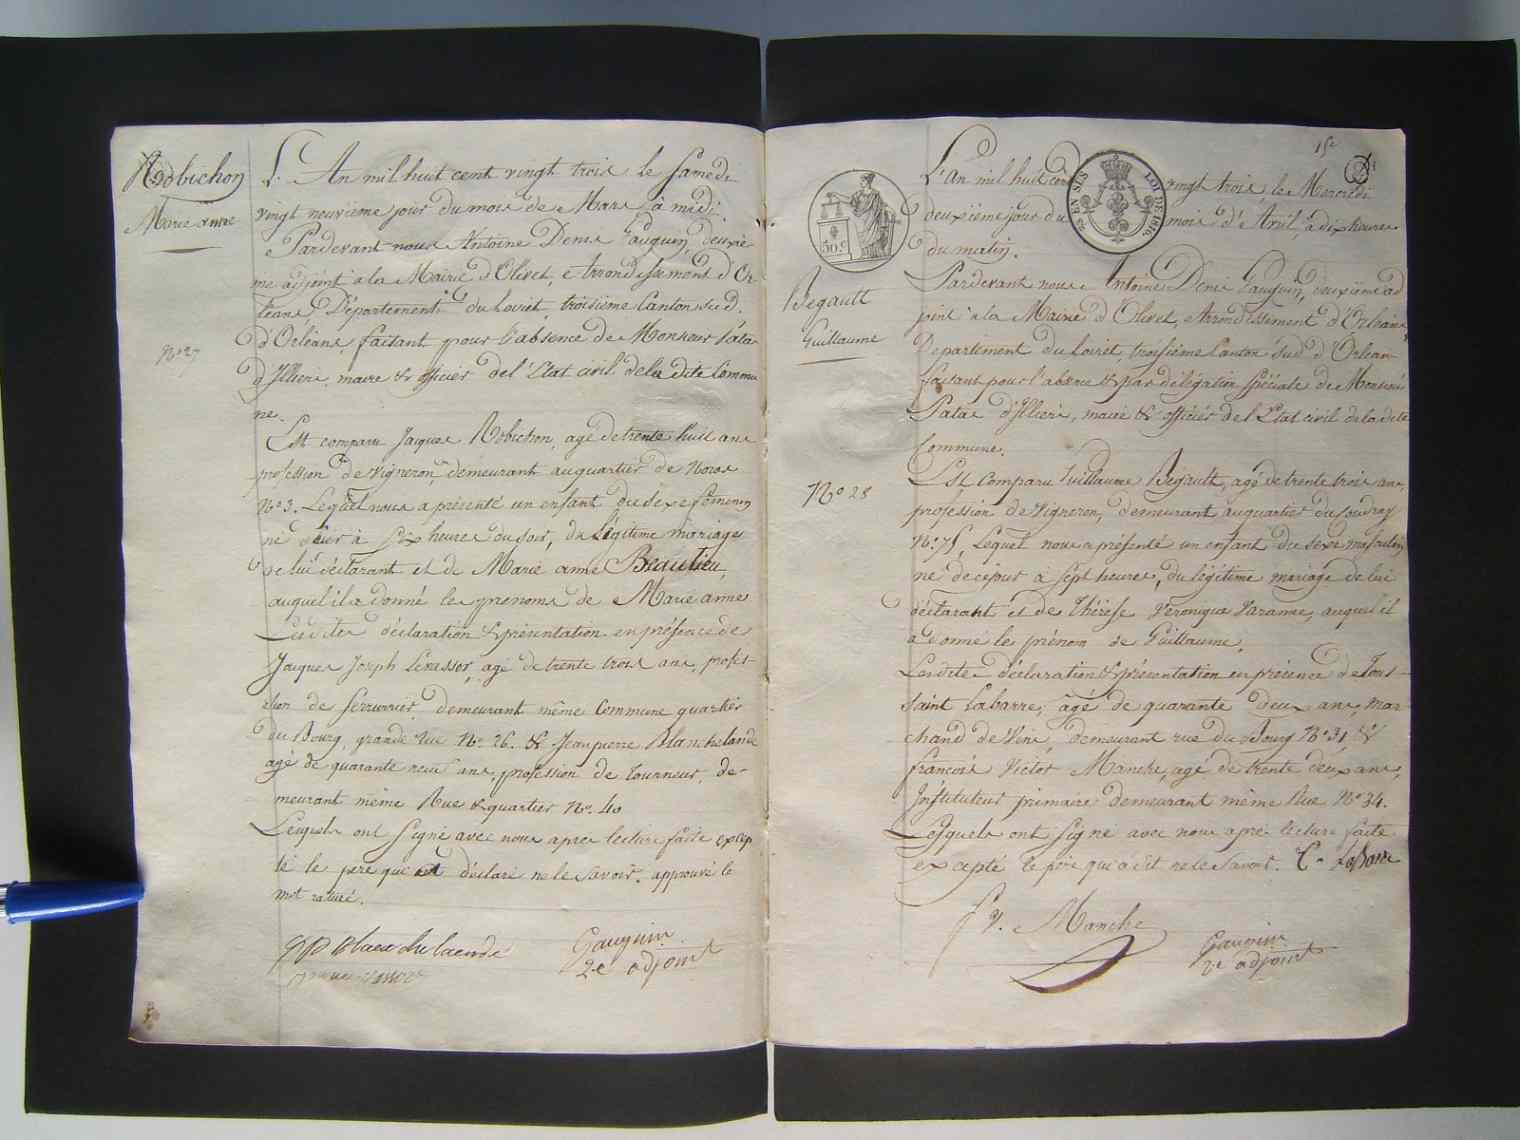 Robichon
Marie anne
N.o 27
L'An mil huit cent vingt trois le Samedi
vingt neuvième jour du mois de Mars à midi.
Pardevant nous Antoine Denis Gauguin, deuxiè-
me adjoint à la Mairie d'Olivet, Arrondissement d'Or
léans, Département du Loiret, troisième Canton Sud
d'Orléans, faisant pour l'absence de Monsieur Patas
d'Illiers, maire & officier de l'Etat civil de la dite Commu
ne.
Est comparu Jacques Robichon, agé de trente huit ans
profession de vigneron, demeurant au quartier de
N.o 3. Lequel nous a présenté un enfant du sexe féminin
né à Six heures du soir, du légitime mariage
de lui déclarant et de Marie anne Beaulieu,
auquel il a donné les prenoms de Marie anne
Lesdites déclaration & présentation en présence de
Jacques Joseph Levassor, agé de trente trois ans, profes-
sion de Serrurier, demeurant même Commune quartier
du Bourg, grande rue N.o 26. & Jean pierre Blanchelande
agé de quarante neuf ans, profession de Tourneur, de-
meurant même Rue & quartier N.o 40
Lesquels ont Signé avec nous après lecture faite excep
té le père qui a déclaré ne le Savoir. approuvé le
mot raturé.
Gauguin
2.e adjoint
15e
L'An mil huit cent vingt trois, le Mercredi
deuxième jour du mois d'Avril, à dix heures
du matin.
45 EN SUS
LOI DE 1816.
50.c
Bégault
Guillaume
N.o 28
Pardevant nous Antoine Denis Gauguin, deuxième ad
joint à la Mairie d'Olivet, Arrondissement d'Orléans
Département du Loiret, troisième Canton Sud d'Orléans
faisant pour l'absence & par délégation spéciale de Monsieur
Patas d'Illiers, maire & officier de l'Etat civil de la dite
Commune.
Est Comparu Guillaume Bégault, agé de trente trois ans,
profession de Vigneron, demeurant au quartier du Coudray
N.o 75, Lequel nous a présenté un enfant du sexe masculin
né de ce jour à Sept heures, du légitime mariage de lui
déclarant et de Thérèse Veronique Varanne, auquel il
a donné le prénom de Guillaume.
Lesdites déclaration & présentation en présence de Tous-
saint Labarre, agé de quarante deux ans, mar-
chand de Vins, demeurant rue du Bourg N.o 31 &
françois Victor Manche, agé de trente deux ans,
Instituteur primaire demeurant même Rue N.o 34.
Lesquels ont Signé avec nous après lecture faite
excepté le père qui a dit ne le Savoir. T. Labarre
f. V. Manche
Gauguin
2.e adjoint